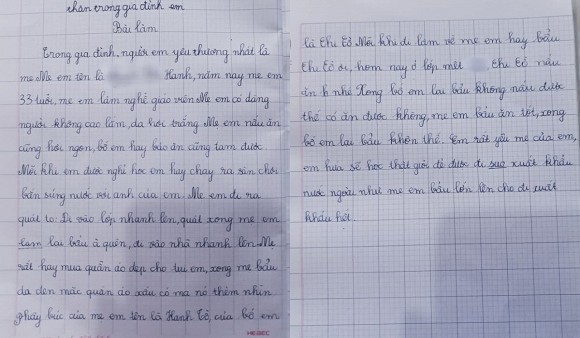 thân trong gia đình em
Bài làm
Trong gia đình, người em yêu thương nhất là
mẹ. Mẹ em tên là Hanh, năm nay mẹ em
33 tuổi, mẹ em làm nghề giáo viên. Mẹ em có dáng
người không cao lắm, da hơi trắng. Mẹ em nấu ăn
cũng hơi ngon, bố em hay bảo ăn cũng tạm được
Mỗi khi em được nghỉ học em hay chạy ra sân chơi
bắn súng nước với anh của em. Mẹ em đi ra
quát to: Đi vào lớp nhanh lên, quát xong mẹ em
lại bảu à quên, đi vào nhà nhanh lên. Mẹ
rất hay mua quần áo đẹp cho tụi em, xong mẹ bảu
da đen mặc quần áo xấu có ma nó thèm nhìn
phây búc của mẹ em tên là Hanh Tồ, của bố em
HERBEC
là thu tồ. Mỗi khi đi làm về mẹ em hay bảu
thu tồ ơi, hôm nay ở lớp mệt thu tồ nấu
ăn nhé. Xong bố em lại bảu không nấu được
thế có ăn được không, mẹ em bảu ăn tốt, xong
bố em lại bảu khôn thế. Em rất yêu mẹ của em,
em hứa sẽ học thật giỏi để được đi xuất khẩu
nước ngoài như mẹ em bảu lớn lên cho đi xuất
khẩu hết.